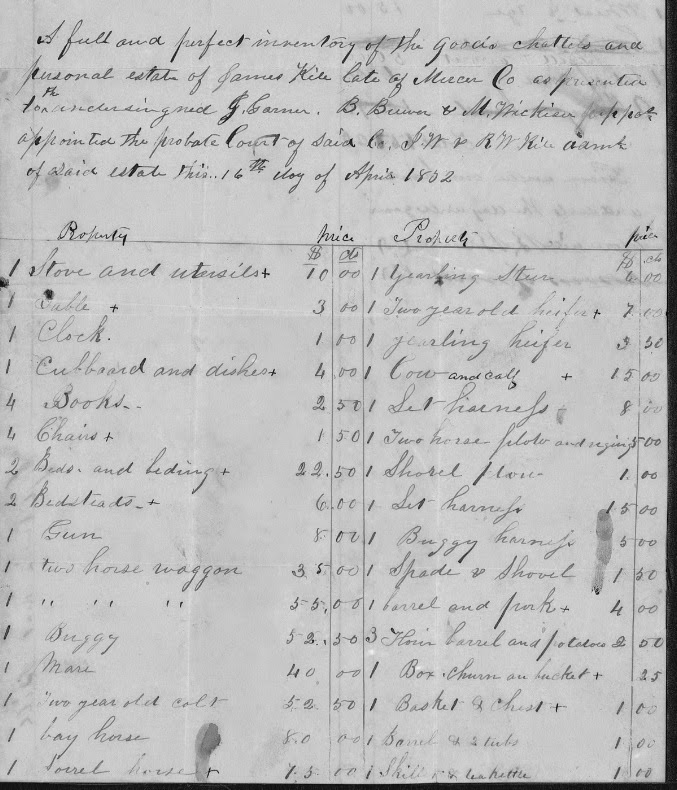 A full and perfect inventory of the goods chattels and
personal estate of James Kile late of Mercer Co as presented
to undersingned J. Garner. B. Bewer & M. Wickiser
appointed the probate Court of Said C. J. W & R W Kile admr
of said estate this 16th day of April 1802
Roperty price Property price
$ cts $ cts
1 Stove and utersils + 10 00 1 yearling Steer 4 00
1 Table + 3 00 1 Two year old heifer + 7 00
1 Clock. 1 00 1 yearling heifer 3 50
1 Cubboard and dishes + 4 00 1 Cow and calf + 15 00
4 Books 2 50 1 Set harness 8 00
4 Chairs + 1 50 1 Two horse plow and 5 00
2 Beds. and beding + 22.50 1 Shovel plow 1.00
2 Bedsteads + 6.00 1 Set harness 15 00
1 Gun 8 00 1 Buggy harness 5 00
1 two horse waggon 35.00 1 Spade & Shovel 1 50
1 " " " 55.00 1 barrel and pork + 4 00
1 Buggy 52.50 3 barrel and potatoes 2 50
1 Mare 40 00 1 Box churn an bucket + 25
1 Two year old colt 52 50 1 Basket & Chest + 1 00
1 bay horse 80 00 1 Barrel & 2 tubs 1.00
1 Sorrel horse + 75 00 1 Skillet & teakettle 1 00